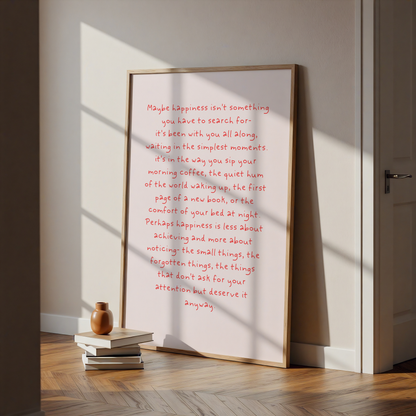 Maybe happiness isn't something
you have to search for-
it's been with you all along,
waiting in the simplest moments.
it's in the way you sip your
morning coffee, the quiet hum
of the world waking up, the first
page of a new book, or the
comfort of your bed at night
Perhaps happiness is less about
achieving and more about
noticing- the small things, the
forgotten things, the things
that don't ask for your
attention but deserve it
anyway